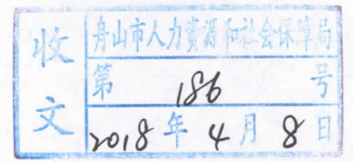 收文
舟山市人力资源和社会保障局
第 186 号
2018年4月8日